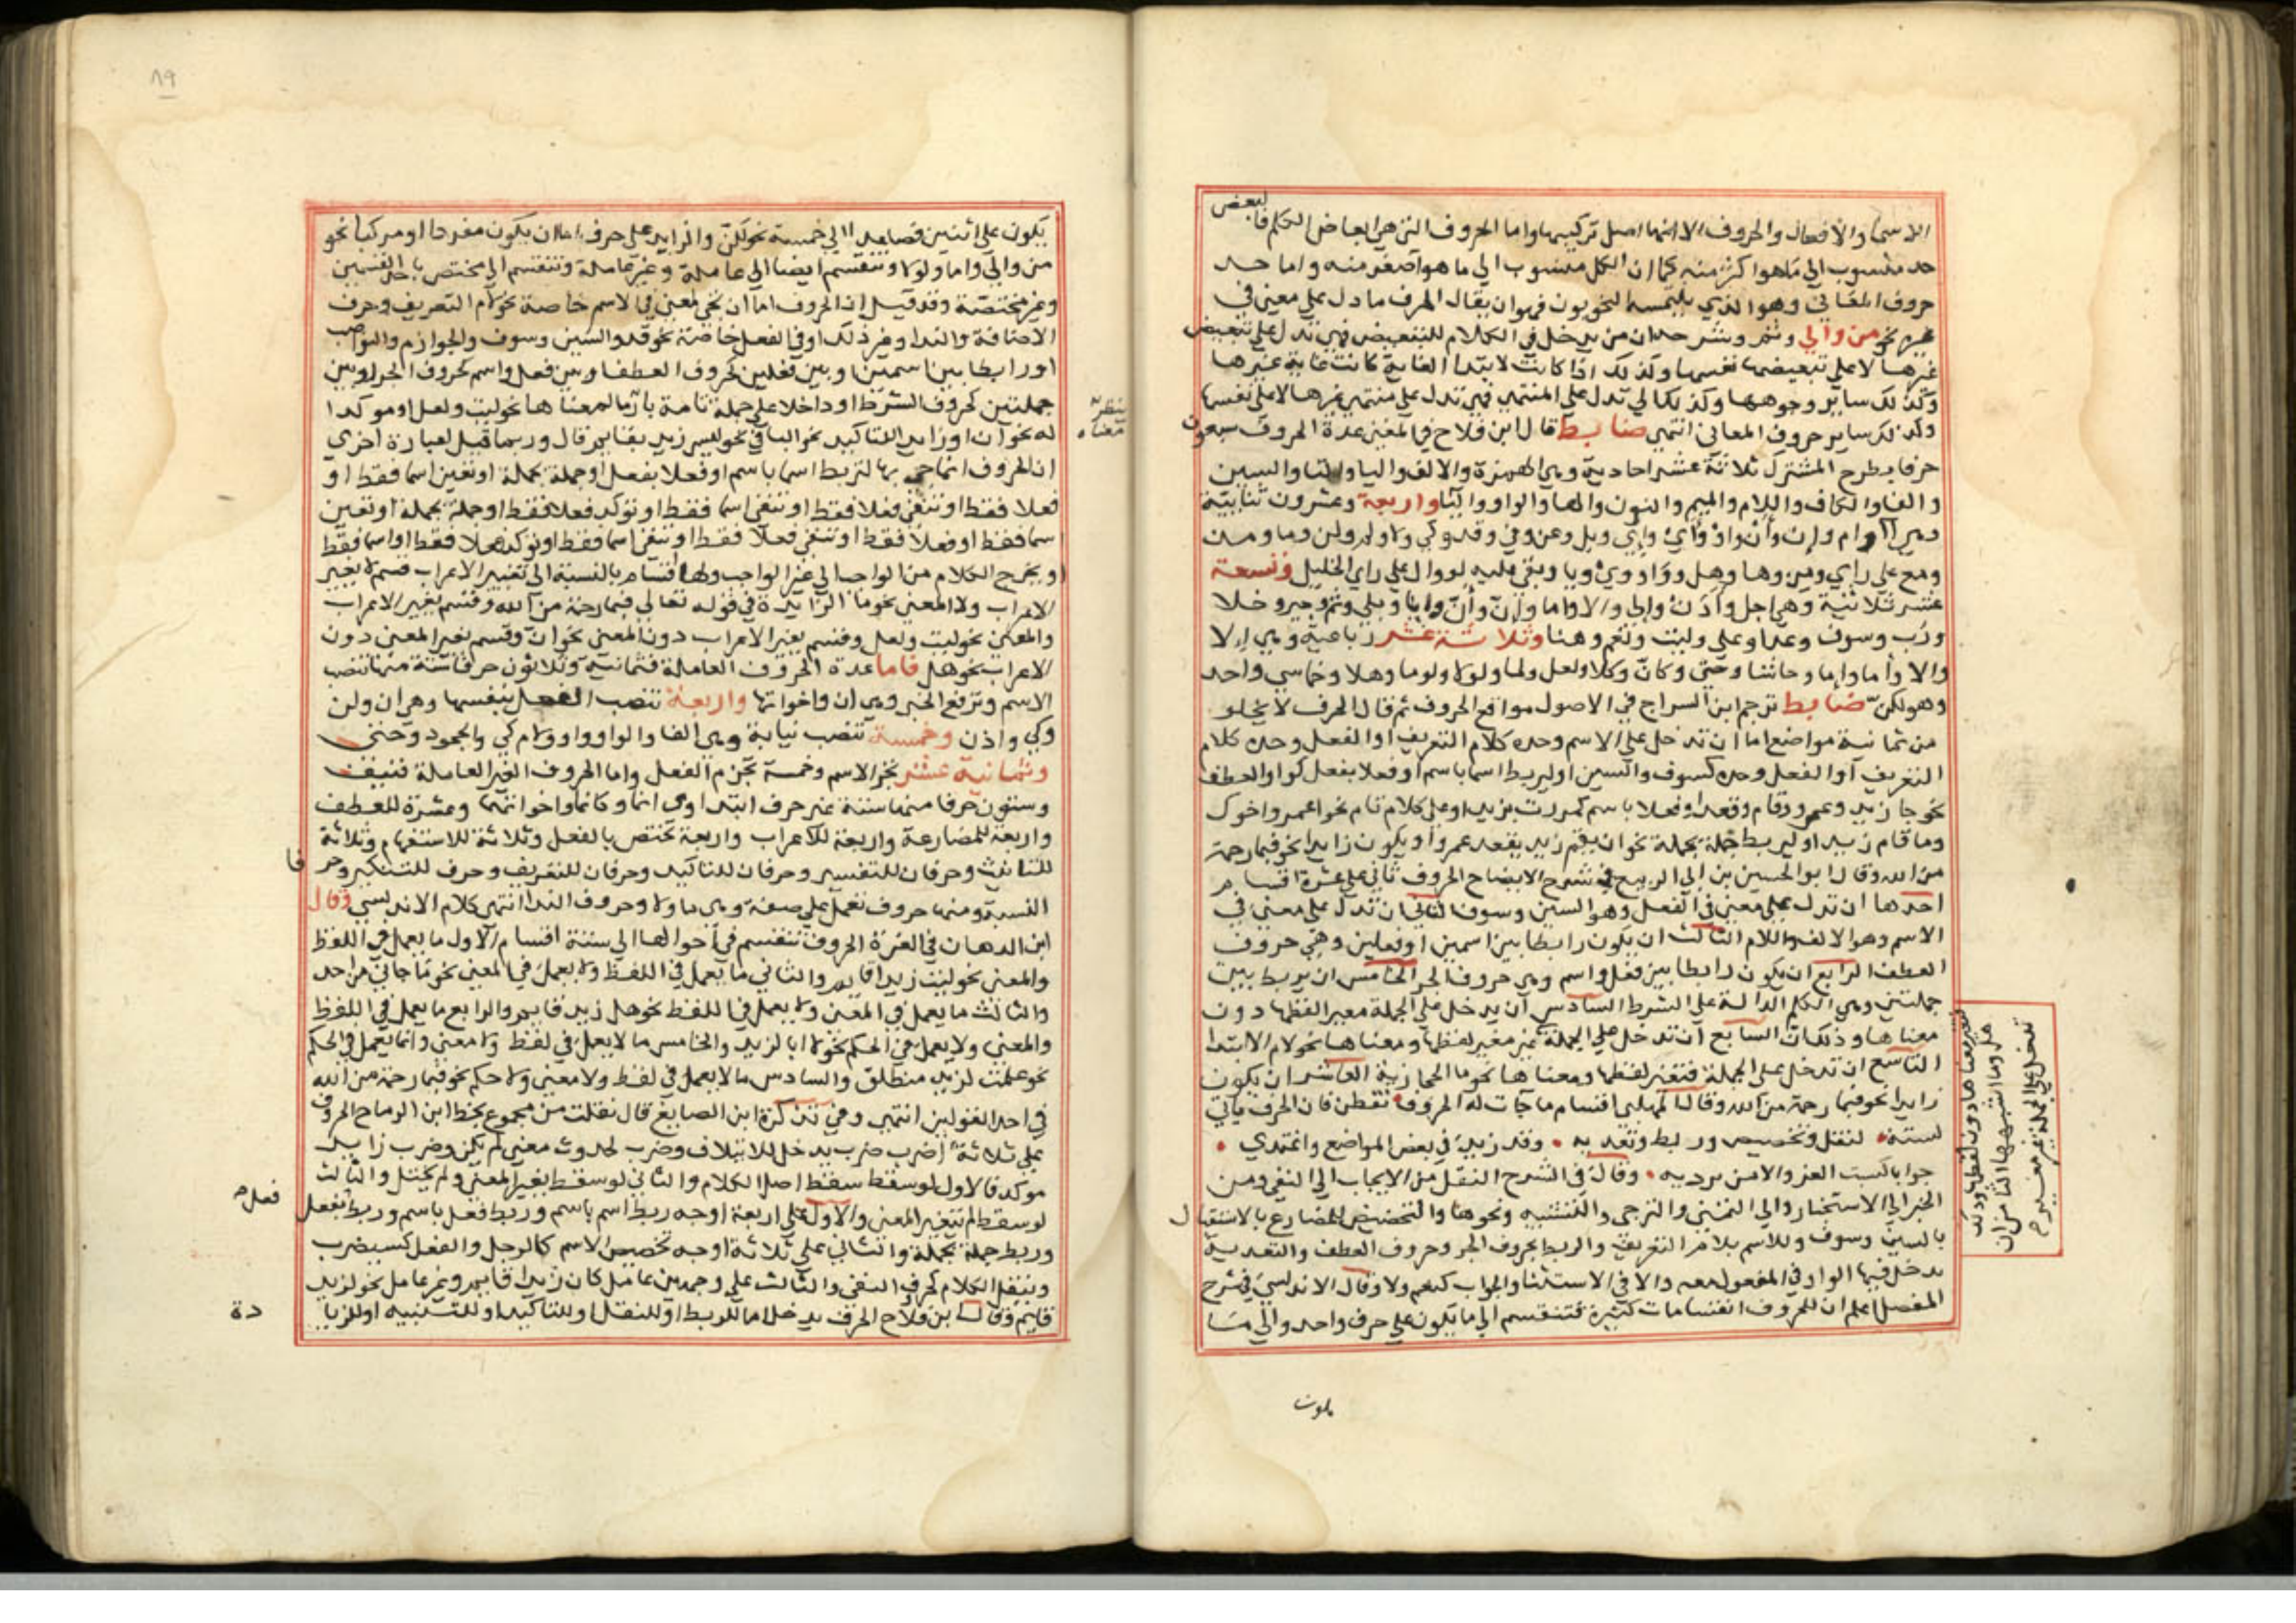 الاسما والافعال والحروف الا انها اصل تركيبها واما الحروف التي هي ابعاض الكلم فالبعض
حد منسوب الي ما هو اكثر منه كما ان الكل منسوب الي ما هو اصغر منه واما حد
حروف المعاني وهو الذي يلتمسه النحويون فهو ان يقال الحرف ما دل علي معني في
غيره نحو من والي وثم وشرحه ان من يدخل في الكلام للتبعيض فهي تدل علي تبعيض
غيرها لا علي تبعيضها نفسها وكذلك اذا كانت لابتدا الغاية كانت غاية غيرها
وكذلك ساير وجوهها وكذلك الي تدل علي المنتهي فهي تدل علي منتهي غيرها لا علي نفسها
وكذلك ساير حروف المعاني انتهي ضابط قال ابن فلاح في المغني عدة الحروف سبعون
حرفا بطرح المشترك ثلاثة عشر احادية وهي الهمزة والالف واليا والتا والسين
والفا والكاف واللام والميم والنون والها والواو والبا واربعة وعشرون ثنائية
وهي او وام وان وأن واذ واي واي وبل وعن وفي وقد وكي ولا ولم ولن وما ومن
ومع علي راي ومن وها وهل ووا ووي ويا وبقي عليه لو وال علي راي الخليل وتسعة
عشر ثلاثية وهي اجل واذن والي والا واما وان وأن وايا وبلي وثم وجير وخلا
ورب وسوف وعدا وعلي وليت ونعم وهيا وثلاثة عشر رباعية وهي الا
والا واما واما وحاشا وحتي وكان وكلا ولعل ولما ولولا ولوما وهلا وخماسي واحد
وهو لكن ضابط ترجم ابن السراج في الاصول مواقع الحروف ثم قال الحرف لا يخلو
من ثمانية مواضع اما ان تدخل علي الاسم وحده كلام التعريف او الفعل وحده كلام
التعريف او الفعل وحده كسوف والسين او ليربط اسما باسم او فعلا بفعل كواو العطف
نحو جا زيد وعمرو وقام وقعد او فعلا باسم كمررت بزيد او علي كلام تام نحو اعمرو اخوك
وما قام زيد او ليربط جملة بجملة نحو ان يقم زيد يقعد عمرو او يكون زايدا نحو فبما رحمة
من الله وقال ابو الحسين بن ابي الربيع في شرح الايضاح الحروف تاتي علي عشرة اقسام
احدها ان تدل علي معني في الفعل وهو السين وسوف الثاني ان تدل علي معني في
الاسم وهو الالف واللام الثالث ان يكون رابطا بين اسمين او فعلين وهي حروف
العطف الرابع ان يكون رابطا بين فعل واسم وهي حروف الجر الخامس ان يربط بين
جملتين وهي الكلم الدالة علي الشرط السادس ان يدخل علي الجملة مغير الفظها دون
معناها وذلك ان السابع ان تدخل علي الجملة غير مغير لفظها ومعناها نحو لام الابتدا
التاسع ان تدخل علي الجملة فتغير لفظها ومعناها نحو ما الحجازية العاشر ان يكون
زايدا نحو فبما رحمة من الله وقال المهلبي اقسام ما جآت له الحروف تفطن فان الحرف ياتي
لستة لنقل وتخصيص وربط وتعديه وقد زيد في بعض المواضع واغتدي
جوابا كسيت العز والامن برديه وقال في الشرح النقل من الايجاب الي النفي ومن
الخبر الي الاستخبار والي التمني والترجي والتشبيه ونحوها والتخصيص للمضارع بالاستقبال
بالسين وسوف وللاسم بلام التعريف والربط بحروف الجر وحروف العطف والتعدية
يدخل فيها الواو في المفعول معه والا في الاستثنا والجواب كنعم ولا وقال الاندلسي في شرح
المفصل اعلم ان للحروف انقسامات كثيرة فتنقسم الي ما يكون علي حرف واحد والي ما
تغير معناها دون لفظها وذلك
هل وما اشبهها الثامن ان
تدخل علي الجملة غير مغير
يكون
٨٩
يكون علي اثنين فصاعدا الي خمسة نحو لكن والزايد علي حرف اما ان يكون مفردا او مركبا نحو
من والي واما ولولا وتنقسم ايضا الي عاملة وغير عاملة وتنقسم الي مختص باحد القسمين
وغير مختصة وقد قيل ان الحروف اما ان تجي لمعني في الاسم خاصة نحو لام التعريف وحرف
الاضافة والندا وغير ذلك او في الفعل خاصة نحو قد والسين وسوف والجوازم والنواصب
او رابطا بين اسمين وبين فعلين كحروف العطف او بين فعل واسم كحروف الجر او بين
جملتين كحروف الشرط او داخلا علي جملة تامة لمعناها نحو ليت ولعل او موكدا
له نحو ان او زايد للتاكيد نحو البا في نحو ليس زيد بقايم قال وربما قيل لعبارة اخري
ان الحروف انما جي بها لتربط اسما باسم او فعلا بفعل او جملة بجملة او تعين اسما فقط او
فعلا فقط او تنفي فعلا فقط او تنفي اسما فقط او توكد فعلا فقط او جملة بجملة او تعين
اسما فقط او فعلا فقط او تنفي فعلا فقط او تنفي اسما فقط او توكد فعلا فقط او اسما فقط
او يخرج الكلام من الواجب الي غير الواجب ولها اقسام بالنسبة الي تغيير الاعراب قسم لا يغير
الاعراب ولا المعني نحو ما الزايدة في قوله تعالي فبما رحمة من الله وقسم يغير الاعراب
والمعني نحو ليت ولعل وقسم يغير الاعراب دون المعني نحو ان وقسم يغير المعني دون
الاعراب نحو هل فاما عدة الحروف العاملة فثمانية وثلاثون حرفا ستة منها تنصب
الاسم وترفع الخبر وهي ان واخواتها واربعة تنصب الفعل بنفسها وهي ان ولن
وكي واذن وخمسة تنصب نيابة وهي الفا والواو واو ولام كي والجحود وحتي
وثمانية عشر تجر الاسم وخمسة تجزم الفعل واما الحروف الغير العاملة فنيف
وستون حرفا منها ستة غير حرف ابتدا وهي انما وكانما واخواتهما وعشرة للعطف
واربعة للمضارعة واربعة للاعراب واربعة تختص بالفعل وثلاثة للاستفهام وثلاثة
للتانيث وحرفان للتفسير وحرفان للتاكيد وحرفان للتعريف وحرف للتنكير وحرفا
النسبة ومنها حروف تعمل علي صفة وهي ما ولا وحروف الندا انتهي كلام الاندلسي وقال
ابن الدهان في الغرة الحروف تنقسم في احوالها الي ستة اقسام الاول ما يعمل في اللفظ
والمعني نحو ليت زيدا قايم والثاني ما يعمل في اللفظ ولا يعمل في المعني نحو ما جاني من احد
والثالث ما يعمل في المعني ولا يعمل في اللفظ نحو هل زيد قايم والرابع ما يعمل في اللفظ
والمعني ولا يعمل في الحكم نحو لا ابا لزيد والخامس ما لا يعمل في لفظ ولا معني وانما يعمل في الحكم
نحو علمت لزيد منطلق والسادس ما لا يعمل في لفظ ولا معني ولا حكم نحو فبما رحمة من الله
في احد القولين انتهي وفي تذكرة ابن الصايغ قال نقلت من مجموع بخط ابن الرماح الحروف
علي ثلاثة اضرب ضرب يدخل للايتلاف وضرب لحدوث معني لم يكن وضرب زايد
موكد فالاول لو سقط سقط اصل الكلام والثاني لو سقط تغير المعني ولم يختل والثالث
لو سقط لم يتغير المعني والاول علي اربعة اوجه ربط اسم باسم وربط فعل باسم وربط فعل بفعل
وربط جملة بجملة والثاني علي ثلاثة اوجه تخصيص الاسم كالرجل والفعل كسيضرب
وينقل الكلام كحرف النفي والثالث علي وجهين عامل كان زيدا قايم وغير عامل نحو لزيد
قايم وقال ابن فلاح الحرف يدخل اما للربط او للنقل او للتاكيد او للتنبيه او للزيادة
ينظر
معناه